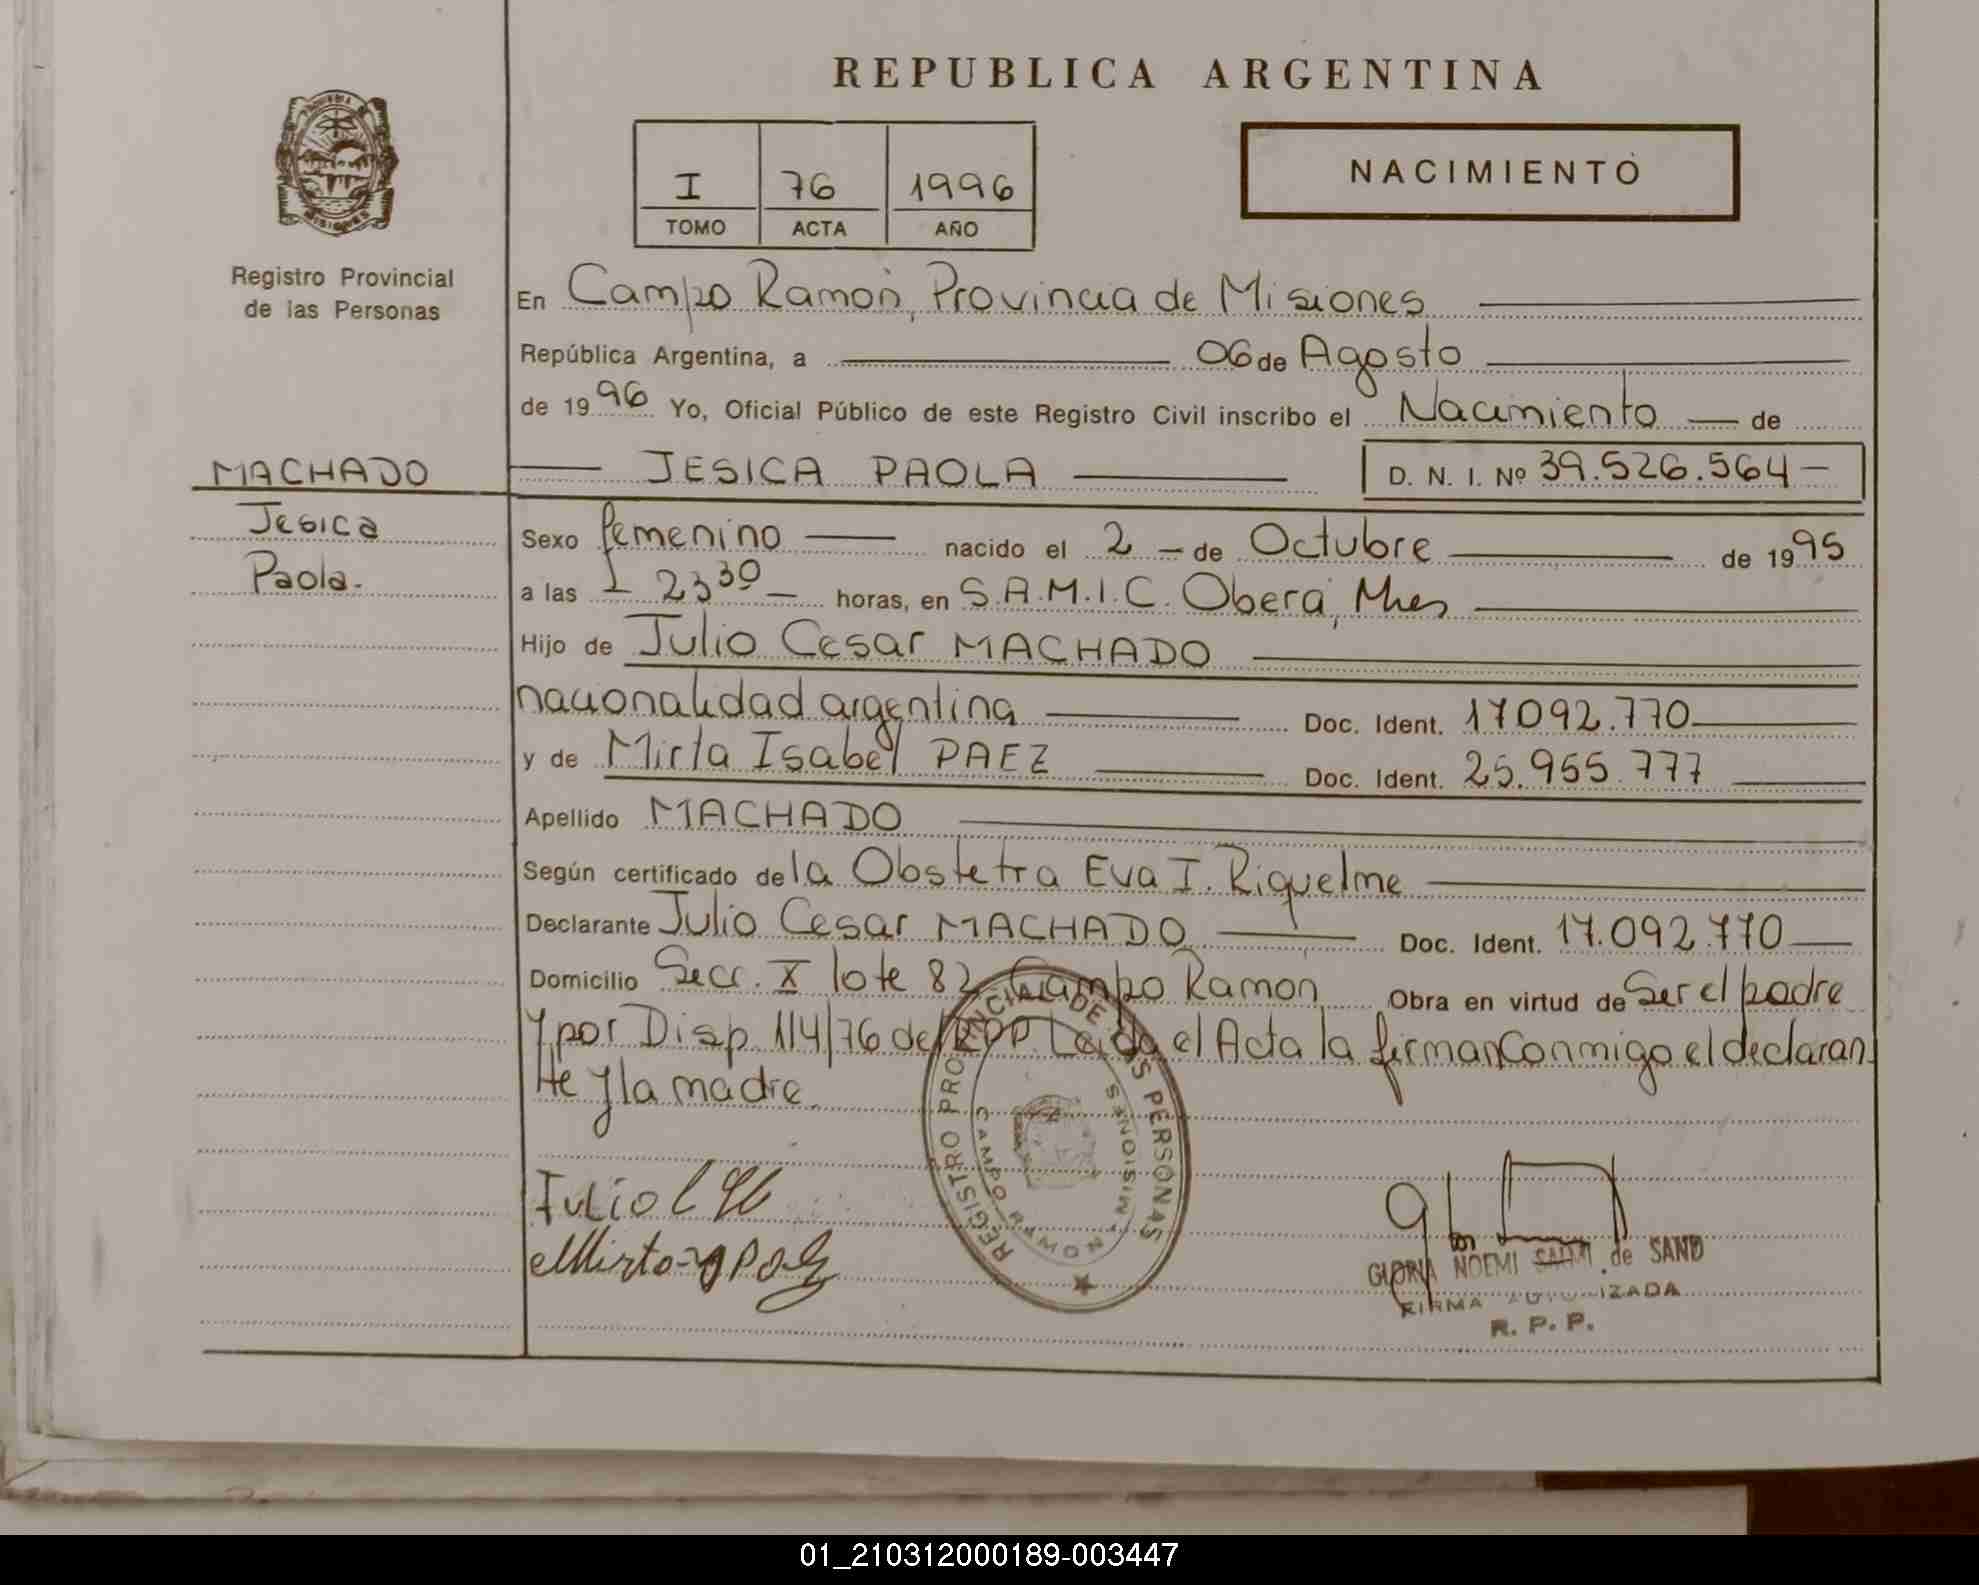 REPUBLICA ARGENTINA
I 76 1996
TOMO ACTA AÑO
NACIMIENTO
Registro Provincial
de las Personas
En Campo Ramón, Provincia de Misiones
República Argentina, a 06 de Agosto
de 1996 Yo, Oficial Público de este Registro Civil inscribo el Nacimiento de
MACHADO
JESICA PAOLA D. N. I. Nº 39.526.564
Jesica
Paola.
Sexo femenino nacido el 2 de Octubre de 1995
a las 23 30 horas, en S.A.M.I.C. Oberá, Mnes
Hijo de Julio Cesar MACHADO
nacionalidad argentina Doc. Ident. 17092.770
y de Mirta Isabel PAEZ Doc. Ident. 25.955.777
Apellido MACHADO
Según certificado de la Obstetra Eva I. Riquelme
Declarante Julio Cesar MACHADO Doc. Ident. 17.092.770
Domicilio Secc. X lote 82 Campo Ramon Obra en virtud de Ser el padre
y por Disp. 114/76 del RPP. Leida el Acta la firman Conmigo el declaran
te y la madre.
REGISTRO PROVINCIAL DE LAS PERSONAS
CAMPO RAMON MISIONES
Julio C
GLORIA NOEMI de SAND
FIRMA AUTORIZADA
R. P. P.
01_210312000189-003447